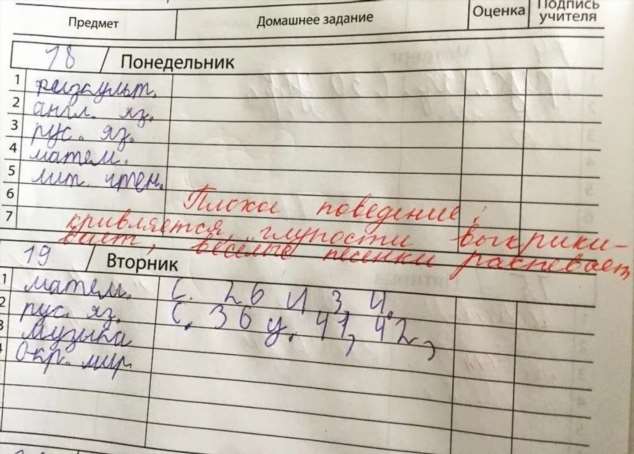 Предмет Домашнее задание Оценка Подпись учителя
18 Понедельник
1 физкульт.
2 англ. яз.
3 рус. яз.
4 матем.
5 лит. чтен.
6 Плоха поведение:
7 кривляется, глупости выкрики-
вает, веселые песенки распевает
19 Вторник
1 матем. с. 26 и 3, 4.
2 рус. яз. с. 36 у. 41, 42,
3 музыка
4 Окр. мир